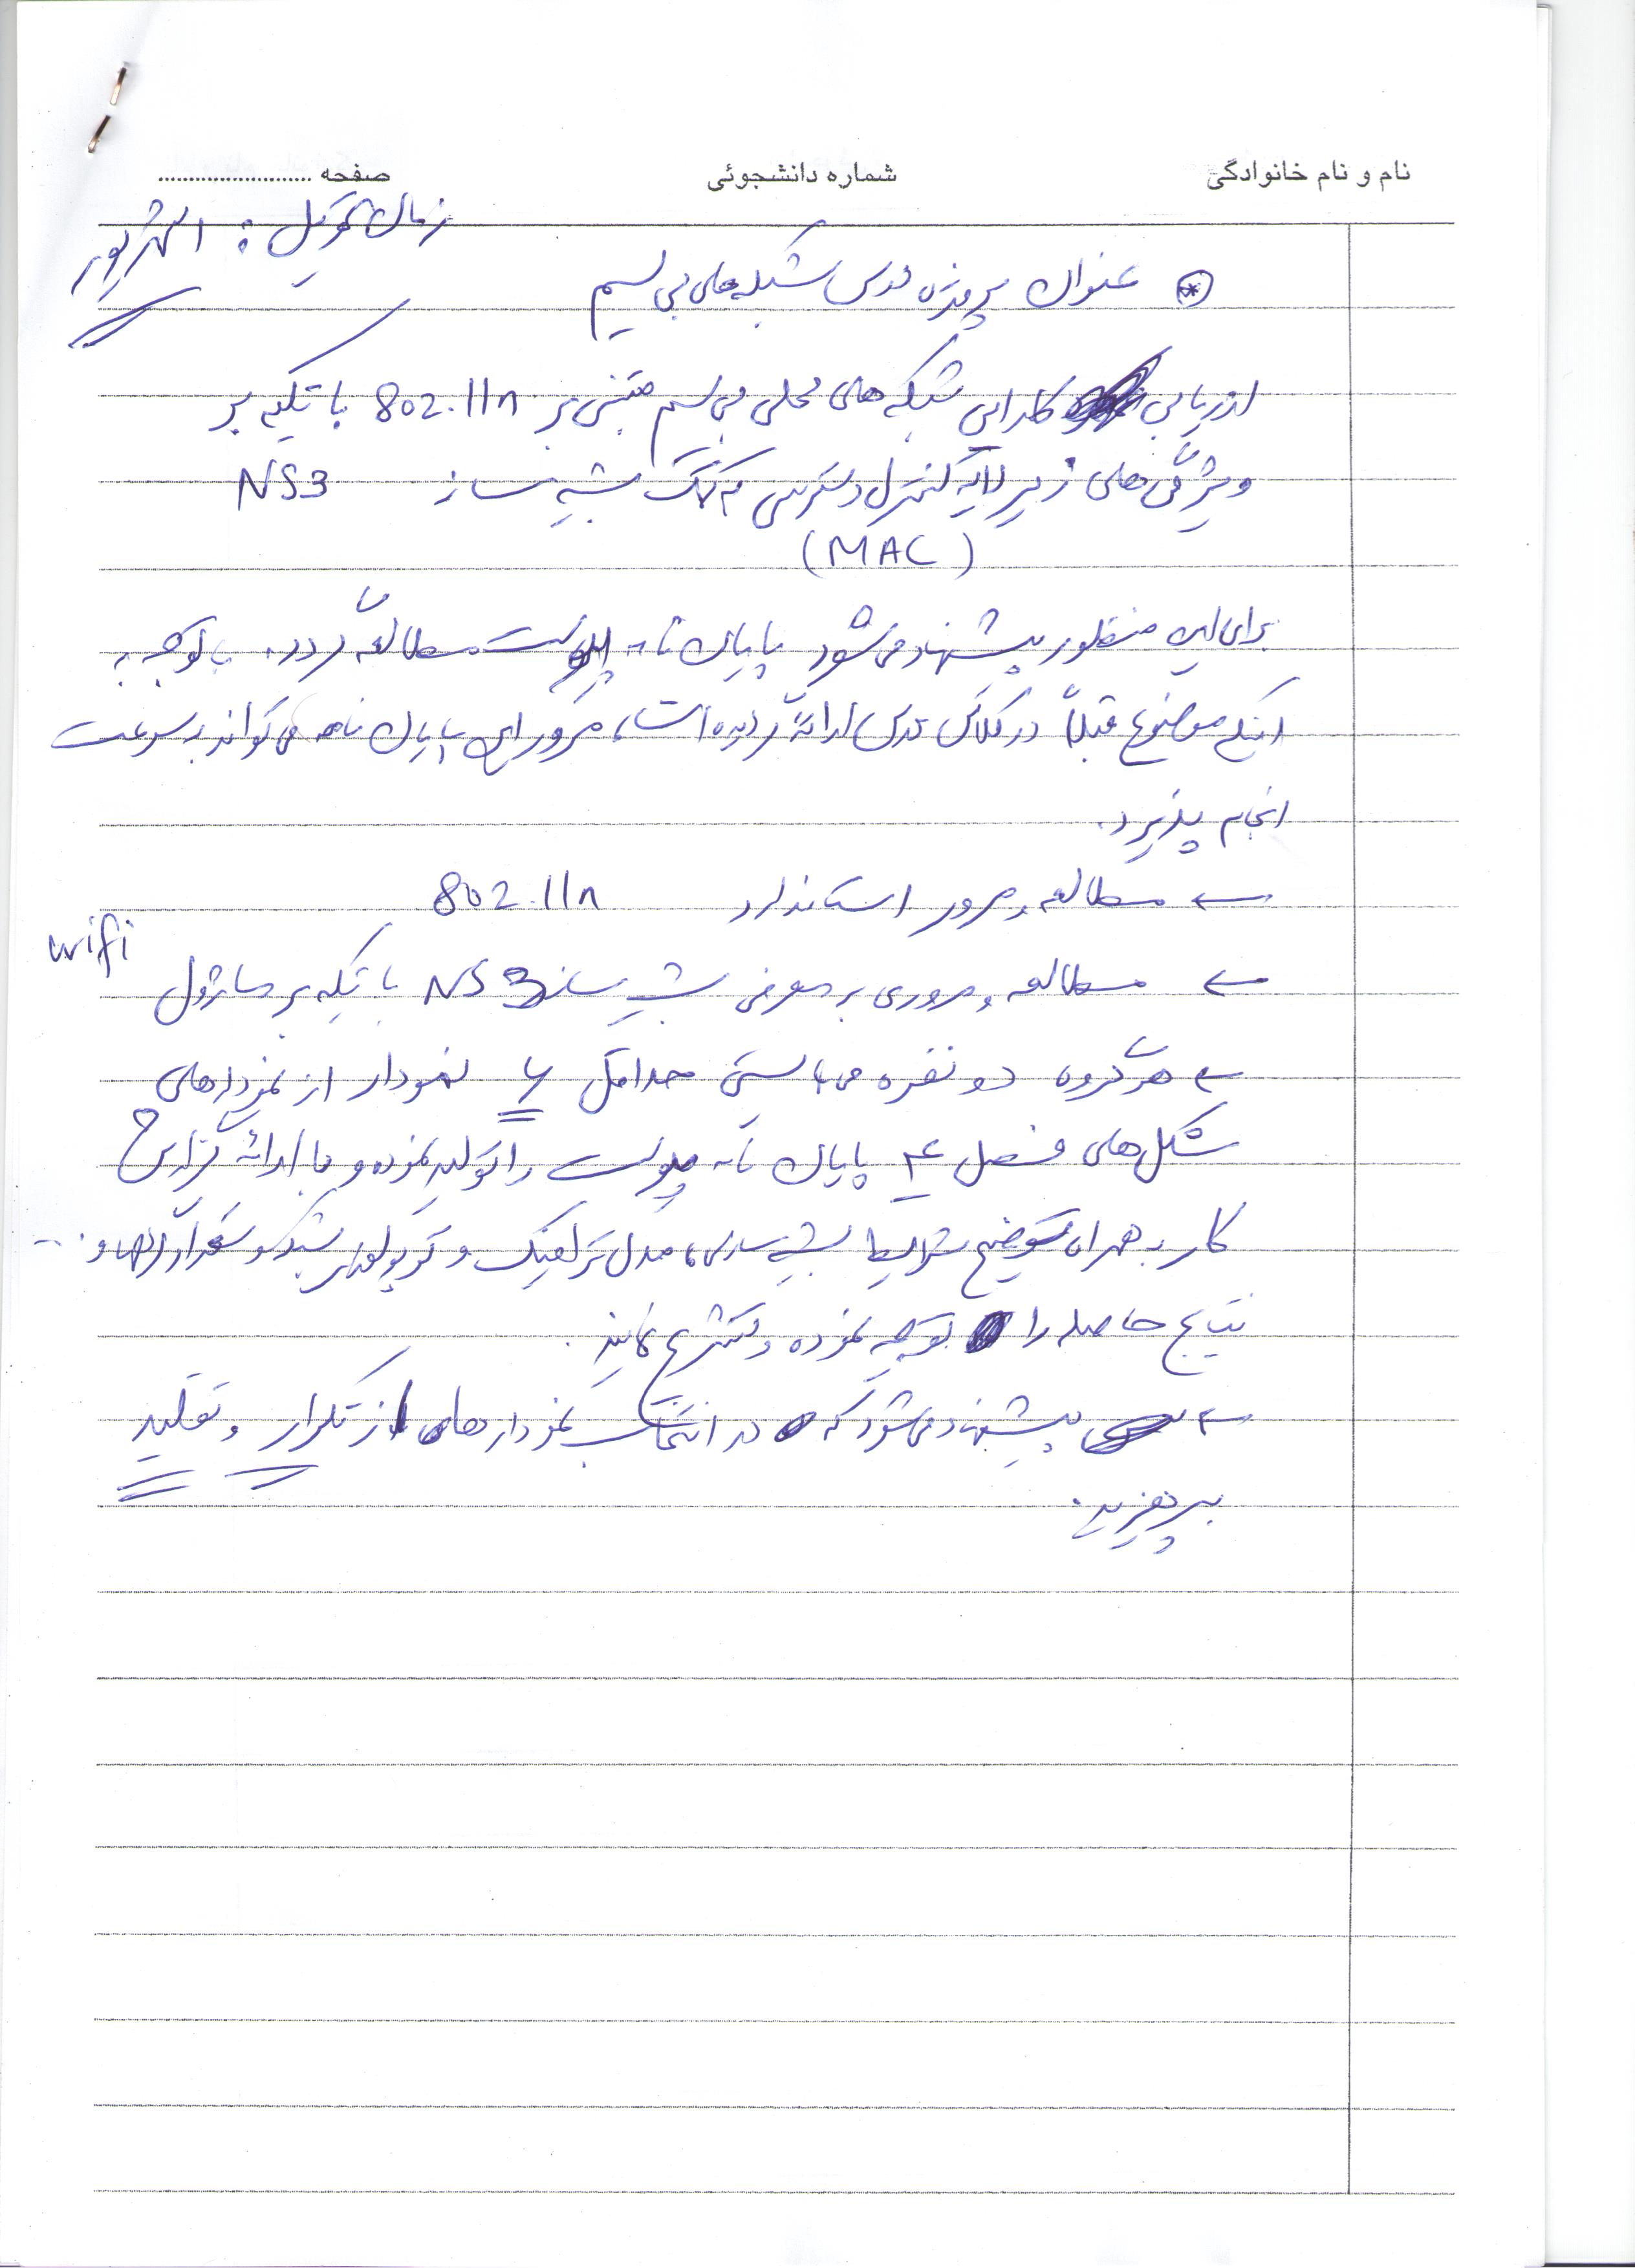 نام و نام خانوادگی شماره دانشجوئی صفحه ..........................
زمان تحویل : ۱ شهریور
عنوان پروژه درس شبکه‌های بی سیم
ارزیابی کارایی شبکه‌های محلی بی سیم مبتنی بر 802.11n با تکیه بر
ویژگی‌های زیر لایه کنترل دسترسی به کمک شبیه ساز NS3
(MAC)
برای این منظور پیشنهاد می‌شود پایان نامه پیوست مطالعه گردد. با توجه به
اینکه موضوع قبلاً در کلاس درس ارائه گردیده است، مرور این پایان نامه می‌تواند به سرعت
انجام پذیرد.
← مطالعه و مرور استاندارد 802.11n
← مطالعه و مروری بر معرفی شبیه ساز NS3 با تکیه بر ماژول wifi
← هر گروه دو نفره می‌بایستی حداقل ۶ نمودار از نمودارهای
شکل‌های فصل ۴ پایان نامه پیوست را تولید نموده و با ارائه گزارش
کار به همراه توضیح شرایط شبیه سازی، مدل ترافیک و توپولوژی شبکه و سایر پارامترها و ...
نتایج حاصله را توجیه نموده و تشریح نمایند.
← پیشنهاد می‌شود که در انتخاب نمودارها از تکرار و تقلید
بپرهیزید.